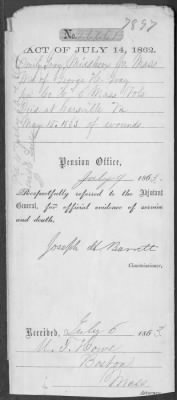 7897
No.
ACT OF JULY 14, 1862.
Emily Gray, Middlesex Co. Mass
Wid of George H. Gray
Mass Vols
Died at Va
May 15, 1863 of wounds
Pension Office,
July 9 1863.
Respectfully referred to the Adjutant
General, for official evidence of service
and death.
Joseph H Barrett
Commissioner.
Received, July 6 1863
Howe
Boston
Mass
Attorney